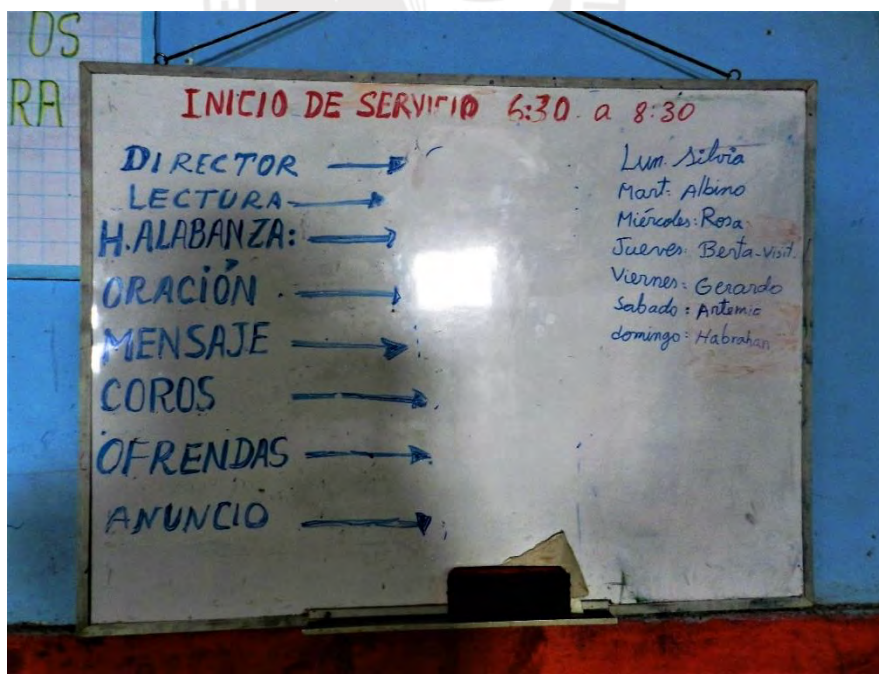 OS
RA
INICIO DE SERVICIO 6:30 a 8:30
DIRECTOR
LECTURA
H. ALABANZA:
ORACIÓN
MENSAJE
COROS
OFRENDAS
ANUNCIO
Lun. Silvia
Mart: Albino
Miércoles: Rosa
Jueves: Berta-Visit.
Viernes: Gerardo
Sabado: Artemio
domingo: Habrahan